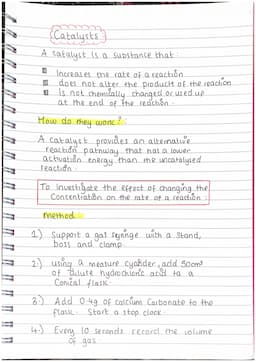 Catalysts
A catalyst is a substance that:
Increases the rate of a reaction
does not alter the products of the reaction
Is not chemically changed or used up
at the end of the reaction.
How do they work?
A catalyst provides an alternative
reaction pathway that has a lower
activation energy than the uncatalysed
reaction.
To Investigate the effect of changing the
Concentration on the rate of a reaction:
method
1.) Support a gas syringe with a stand,
boss and clamp
2.) using a measure cylinder, add 50cm³
of dilute hydrochloric acid to a
Conical flask
3.) Add 0.4g of calcium Carbonate to the
flask. Start a stop clock.
4.) Every 10 seconds record the volume
of gas